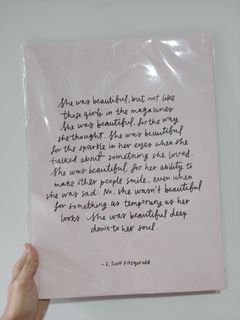 She was beautiful, but not like
those girls in the magazines.
She was beautiful, for the way
she thought. She was beautiful
for the sparkle in her eyes when she
talked about something she loved.
She was beautiful, for her ability to
make other people smile, even when
she was sad. No, she wasn't beautiful
for something as temporary as her
looks. She was beautiful deep
down to her soul.
- F. Scott Fitzgerald